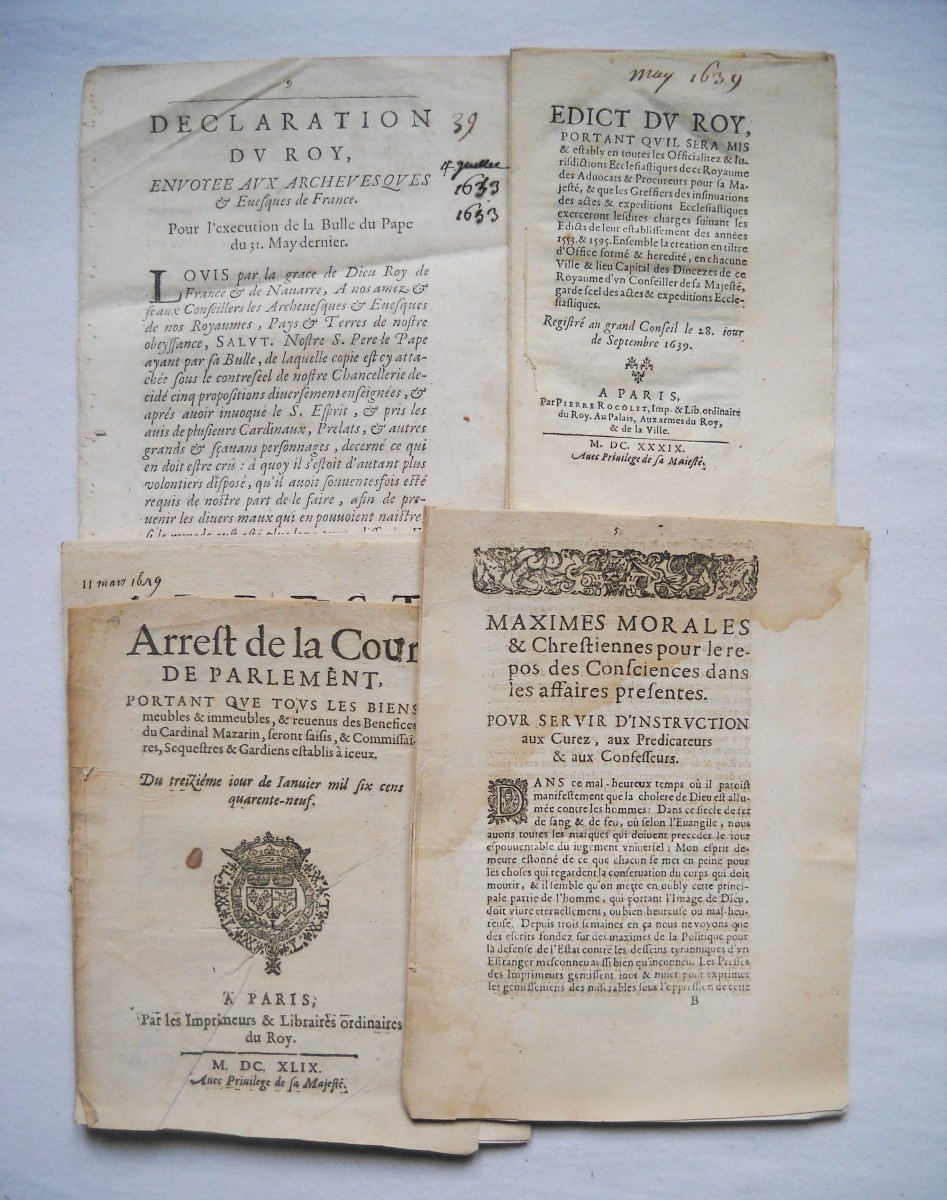 9
DECLARATION
DV ROY,
ENVOYEE AVX ARCHEVESQVES
& Euesques de France.
Pour l'execution de la Bulle du Pape
du 31. May dernier.
39
1653
1653
LOVIS par la grace de Dieu Roy de
France & de Nauarre, A nos amez &
feaux Conseillers les Archeuesques & Euesques
de nos Royaumes, Pays & Terres de nostre
obeyssance, SALVT. Nostre S. Pere le Pape
ayant par sa Bulle, de laquelle copie est cy atta-
chée sous le contreseel de nostre Chancellerie de-
cidé cinq propositions diuersement enseignées, &
aprés auoir inuoqué le S. Esprit, & pris les
auis de plusieurs Cardinaux, Prelats, & autres
grands & sçauans personnages, decerné ce qui
en doit estre crû : à quoy il s'estoit d'autant plus
volontiers disposé, qu'il auoit souuentesfois esté
requis de nostre part de le faire, afin de pre-
uenir les diuers maux qui en pouuoient naistre
may 1639
EDICT DV ROY,
PORTANT QV'IL SERA MIS
& estably en toutes les Officialitez & Iu-
risdictions Ecclesiastiques de ce Royaume
des Aduocats & Procureurs pour sa Ma-
jesté, & que les Greffiers des insinuations
des actes & expeditions Ecclesiastiques
exerceront lesdites charges suiuant les
Edicts de leur establissement des années
1553. & 1595. Ensemble la creation en tiltre
d'Office formé & heredité, en chacune
Ville & lieu Capital des Dioceses de ce
Royaume d'vn Conseiller de sa Majesté,
garde seel des actes & expeditions Eccle-
siastiques.
Registré au grand Conseil le 28. iour
de Septembre 1639.
A PARIS,
Par PIERRE ROCOLET, Imp. & Lib. ordinaire
du Roy. Au Palais, Aux armes du Roy,
& de la Ville.
M. DC. XXXIX.
Auec Priuilege de sa Maiesté.
11 mars 1649
Arrest de la Cour
DE PARLEMENT,
PORTANT QVE TOVS LES BIENS
meubles & immeubles, & reuenus des Benefices
du Cardinal Mazarin, seront saisis, & Commissai-
res, Sequestres & Gardiens establis à iceux.
Du treiziéme iour de Ianuier mil six cens
quarente-neuf.
A PARIS,
Par les Imprimeurs & Libraires ordinaires
du Roy.
M. DC. XLIX.
Auec Priuilege de sa Majesté.
5
MAXIMES MORALES
& Chrestiennes pour le re-
pos des Consciences dans
les affaires presentes.
POVR SERVIR D'INSTRVCTION
aux Curez, aux Predicateurs
& aux Confesseurs.
DANS ce mal-heureux temps où il paroist
manifestement que la cholere de Dieu est allu-
mée contre les hommes: Dans ce siecle de fer
de sang & de feu, où selon l'Euangile, nous
auons toutes les marques qui doiuent preceder le iour
espouuentable du iugement vniuersel; Mon esprit de-
meure estonné de ce que chacun se met en peine pour
les choses qui regardent la conseruation du corps qui doit
mourir, & il semble qu'on mette en oubly cette princi-
pale partie de l'homme, qui portant l'Image de Dieu,
doit viure eternellement, ou bien-heureuse ou mal-heu-
reuse. Depuis trois semaines en ça nous ne voyons que
des escrits fondez sur des maximes de la Politique pour
la defense de l'Estat contre les desseins tyranniques d'vn
Estranger mesconneu aussi bien qu'inconneu. Les Presses
des Imprimeurs gemissent iour & nuict pour exprimer
les gemissemens des miserables sous l'oppression de cette
B